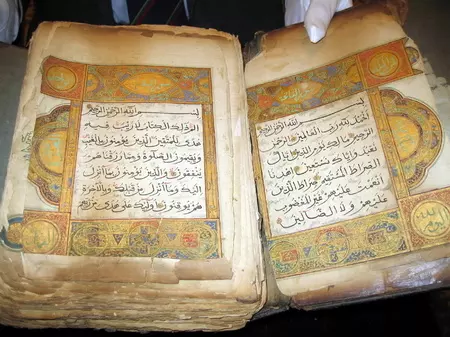 بسم الله الرحمن الرحيم
الحمد لله رب العالمين الرحمن
الرحيم ملك يوم الدين اياك
نعبد واياك نستعين اهدنا
الصراط المستقيم صراط الذين
انعمت عليهم غير المغضوب
عليهم ولا الضالين
بسم الله الرحمن الرحيم
الم ذلك الكتاب لا ريب فيه
هدى للمتقين الذين يؤمنون بالغيب
ويقيمون الصلوة ومما رزقناهم
ينفقون والذين يؤمنون بما انزل
اليك وما انزل من قبلك وبالاخرة
هم يوقنون اولئك على هدى من ربهم